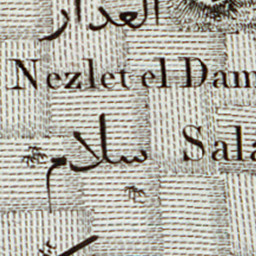 العدار
Nezlet el Dam
سلام
Sala